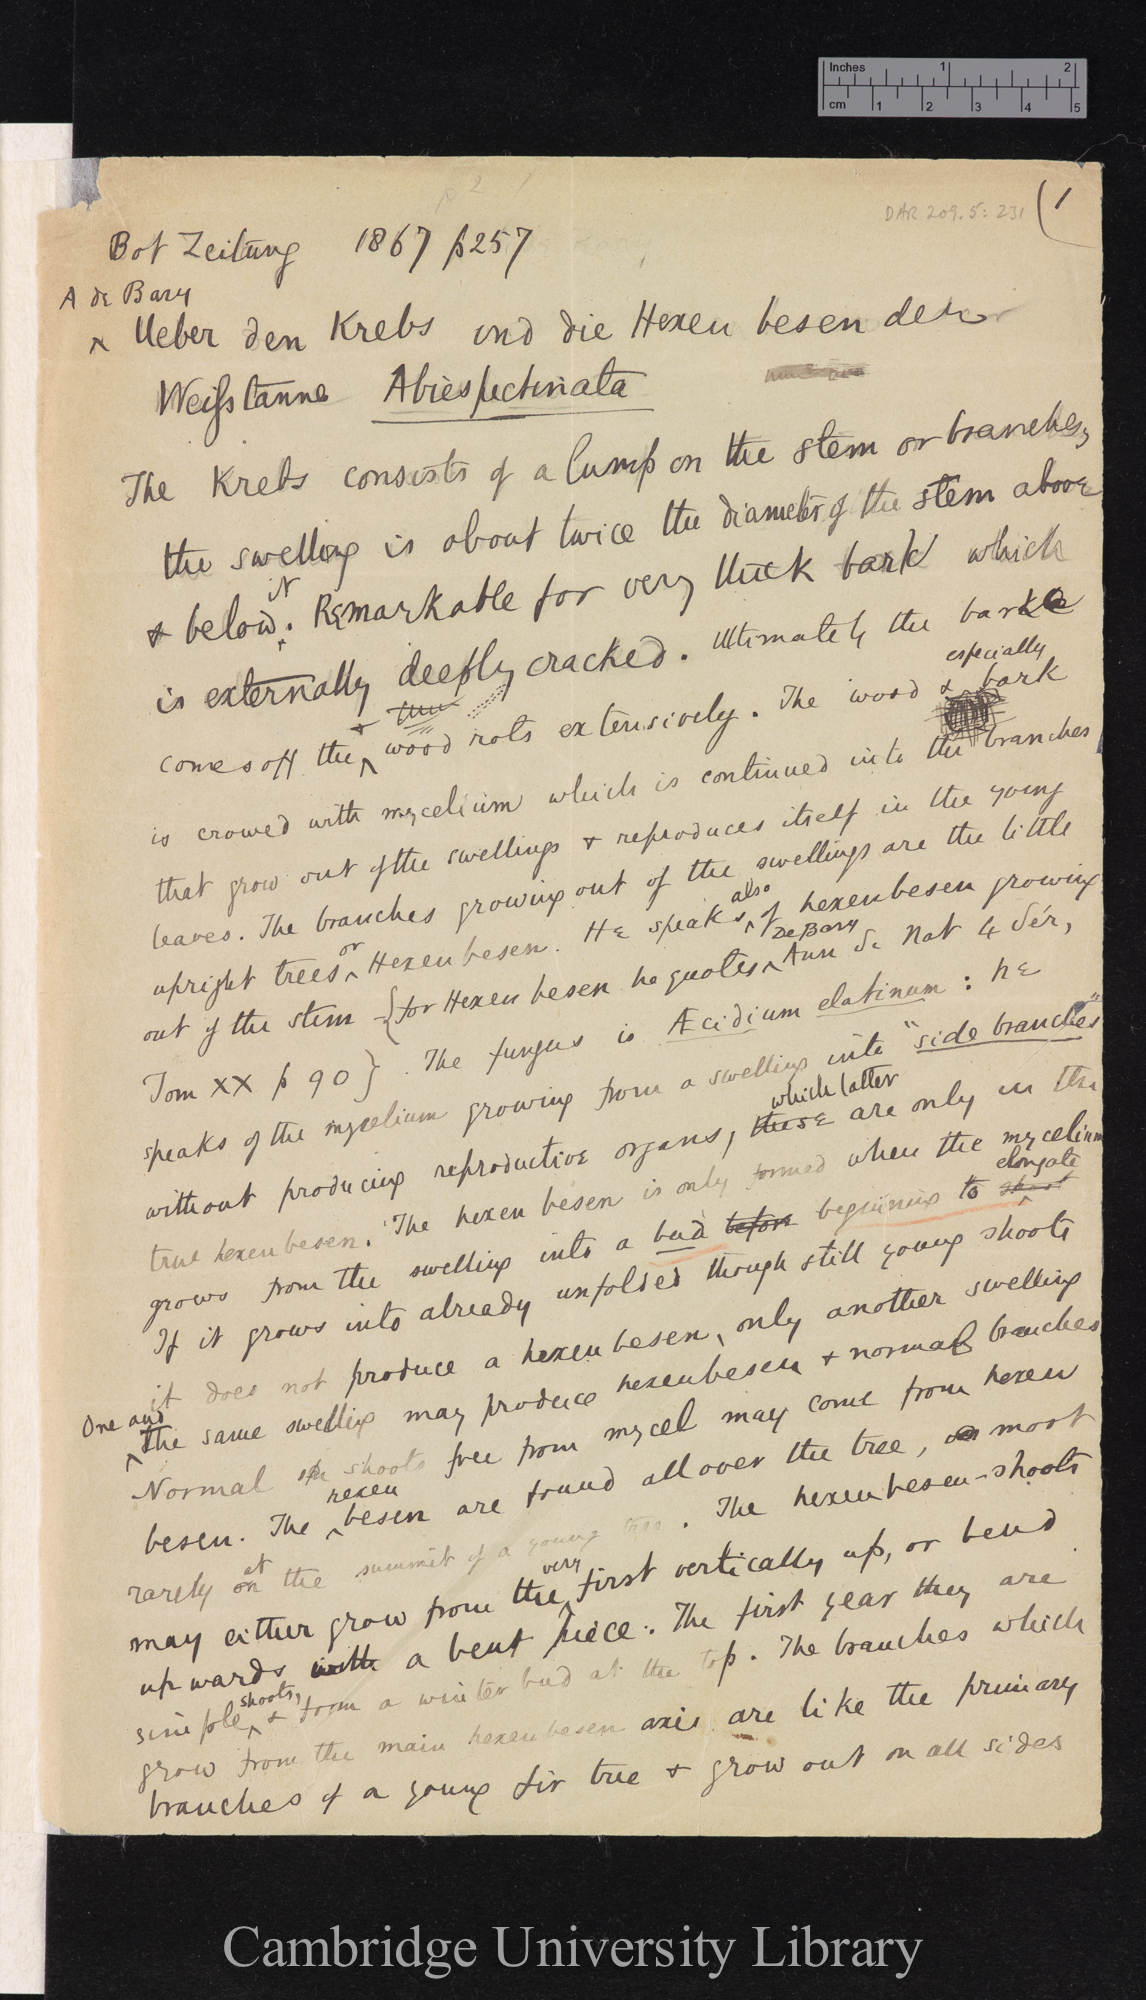 Inches 1 2
cm 1 2 3 4 5
DAR 209.5: 231 (1
Bot Zeitung 1867 p257
A de Bary
^ Ueber den Krebs und die Hexen besen der
Weißtanne Abies pectinata
The Krebs consists of a lump on the stem or branches,
the swelling is about twice the diameter of the stem above
& below. It Remarkable for very thick bark which
is externally deeply cracked. Ultimately the bark
comes off the & wood rots extensively. The wood & especially bark
is crowed with mycelium which is continued into the branches
that grow out of the swellings & reproduces itself in the young
leaves. The branches growing out of the swellings are the little
upright trees or Hexenbesen. He speaks also of hexenbesen growing
out of the stem {for Hexen besen he quotes De Bary Ann Sc Nat 4 Sér,
Tom XX p 90} . The fungus is Æcidium elatinum : he
speaks of the mycelium growing from a swelling into "side branches"
without producing reproductive organs, these which latter are only in the
true hexenbesen. The hexen besen is only formed when the mycelium
grows from the swelling into a bud before beginning to shoot elongate
If it grows into already unfolded though still young shoots
it does not produce a hexenbesen, only another swelling
One and the same swelling may produce hexenbesen & normal branches
Normal shoots free from mycel may come from hexen
besen. The hexen besen are found all over the tree, moot
rarely on at the summit of a young tree. The hexenbesen-shoots
may either grow from the very first vertically up, or bend
upwards with a bent piece. The first year they are
simple shoots, & form a winter bud at the top. The branches which
grow from the main hexenbesen axis are like the primary
branches of a young fir tree & grow out on all sides
Cambridge University Library